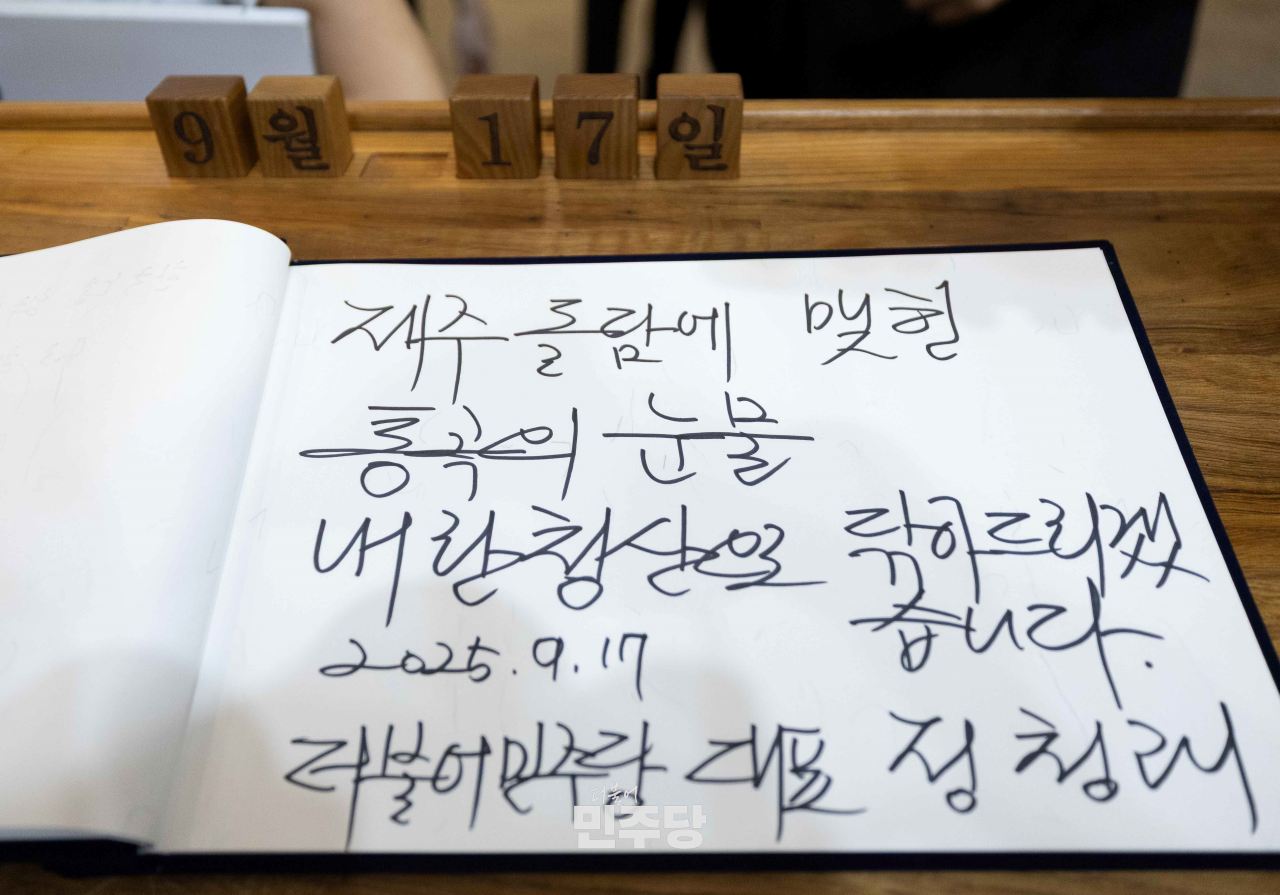 9월 17일
제주 돌담에 맺힌
통곡의 눈물
내란청산으로 닦아드리겠
습니다.
2025. 9. 17
더불어민주당 대표 정청래
더불어
민주당